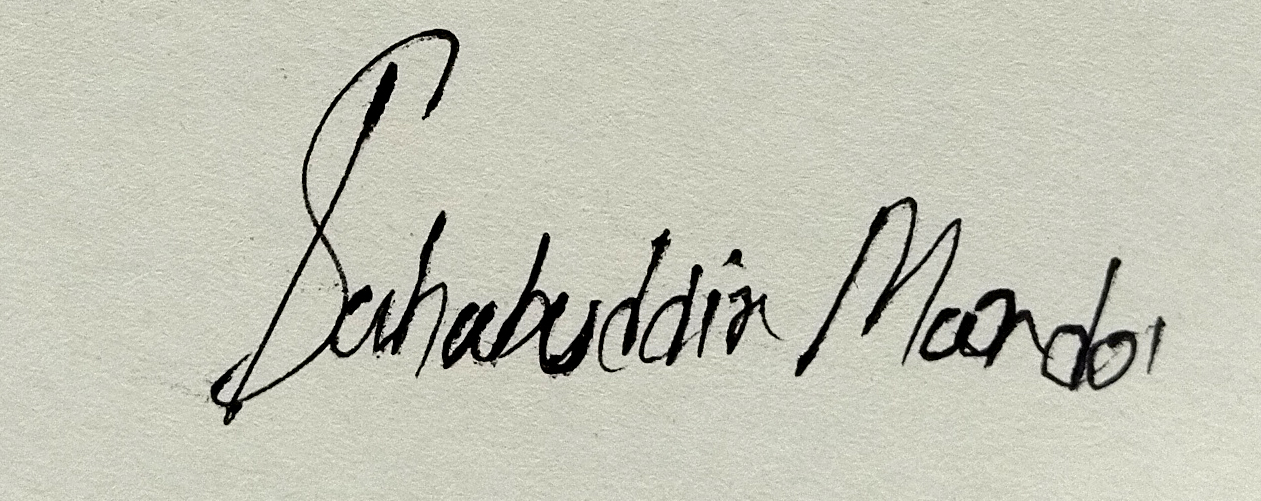 Sahabuddin Mandol